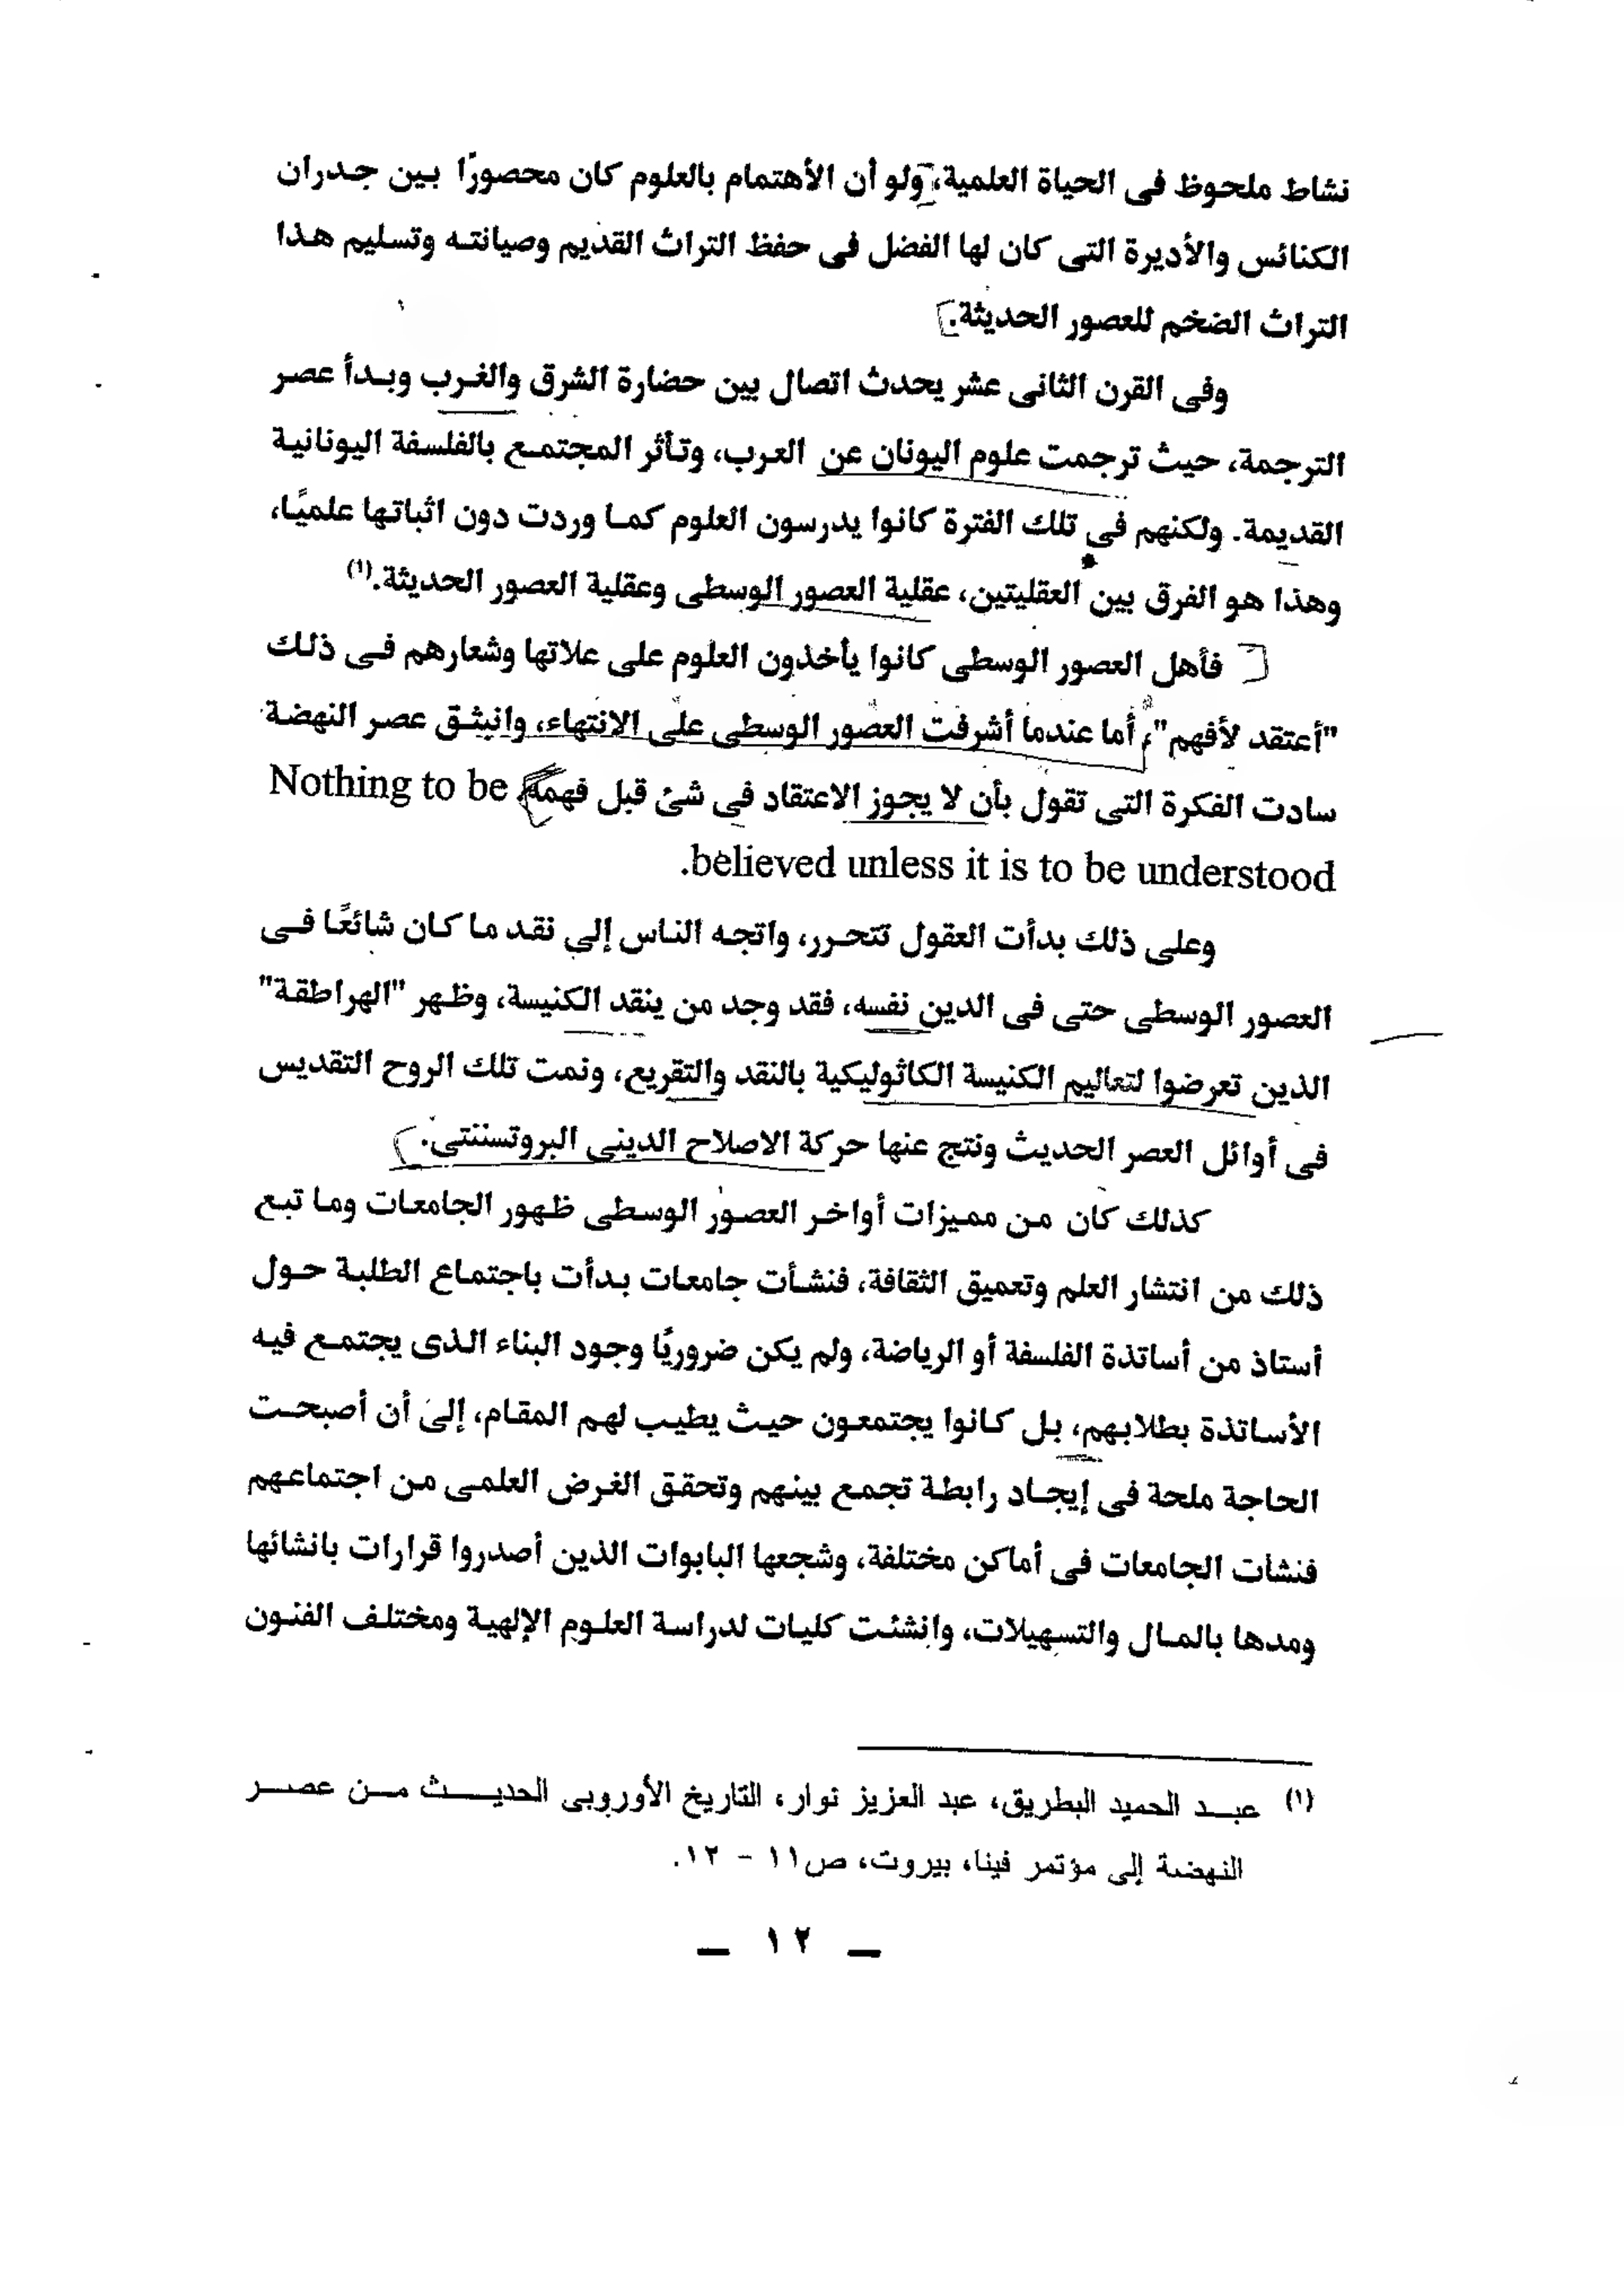 نشاط ملحوظ فى الحياة العلمية، ولو أن الأهتمام بالعلوم كان محصورًا بين جدران
الكنائس والأديرة التى كان لها الفضل فى حفظ التراث القديم وصيانته وتسليم هذا
التراث الضخم للعصور الحديثة.
وفى القرن الثانى عشر يحدث اتصال بين حضارة الشرق والغرب وبدأ عصر
الترجمة، حيث ترجمت علوم اليونان عن العرب، وتأثر المجتمع بالفلسفة اليونانية
القديمة. ولكنهم فى تلك الفترة كانوا يدرسون العلوم كما وردت دون اثباتها علميًا،
وهذا هو الفرق بين العقليتين، عقلية العصور الوسطى وعقلية العصور الحديثة.(١)
فأهل العصور الوسطى كانوا يأخذون العلوم على علاتها وشعارهم فى ذلك
"أعتقد لأفهم"، أما عندما أشرفت العصور الوسطى على الانتهاء، وانبثق عصر النهضة
سادت الفكرة التى تقول بأن لا يجوز الاعتقاد فى شئ قبل فهمه Nothing to be
believed unless it is to be understood.
وعلى ذلك بدأت العقول تتحرر، واتجه الناس إلى نقد ما كان شائعًا فى
العصور الوسطى حتى فى الدين نفسه، فقد وجد من ينقد الكنيسة، وظهر "الهراطقة"
الذين تعرضوا لتعاليم الكنيسة الكاثوليكية بالنقد والتقريع، ونمت تلك الروح التقديس
فى أوائل العصر الحديث ونتج عنها حركة الاصلاح الدينى البروتسنتى.
كذلك كان من مميزات أواخر العصور الوسطى ظهور الجامعات وما تبع
ذلك من انتشار العلم وتعميق الثقافة، فنشأت جامعات بدأت باجتماع الطلبة حول
أستاذ من أساتذة الفلسفة أو الرياضة، ولم يكن ضروريًا وجود البناء الذى يجتمع فيه
الأساتذة بطلابهم، بل كانوا يجتمعون حيث يطيب لهم المقام، إلى أن أصبحت
الحاجة ملحة فى إيجاد رابطة تجمع بينهم وتحقق الغرض العلمى من اجتماعهم
فنشات الجامعات فى أماكن مختلفة، وشجعها البابوات الذين أصدروا قرارات بانشائها
ومدها بالمال والتسهيلات، وانشئت كليات لدراسة العلوم الإلهية ومختلف الفنون
(١) عبد الحميد البطريق، عبد العزيز نوار، التاريخ الأوروبى الحديث من عصر
النهضة إلى مؤتمر فينا، بيروت، ص١١ - ١٢.
— ١٢ —